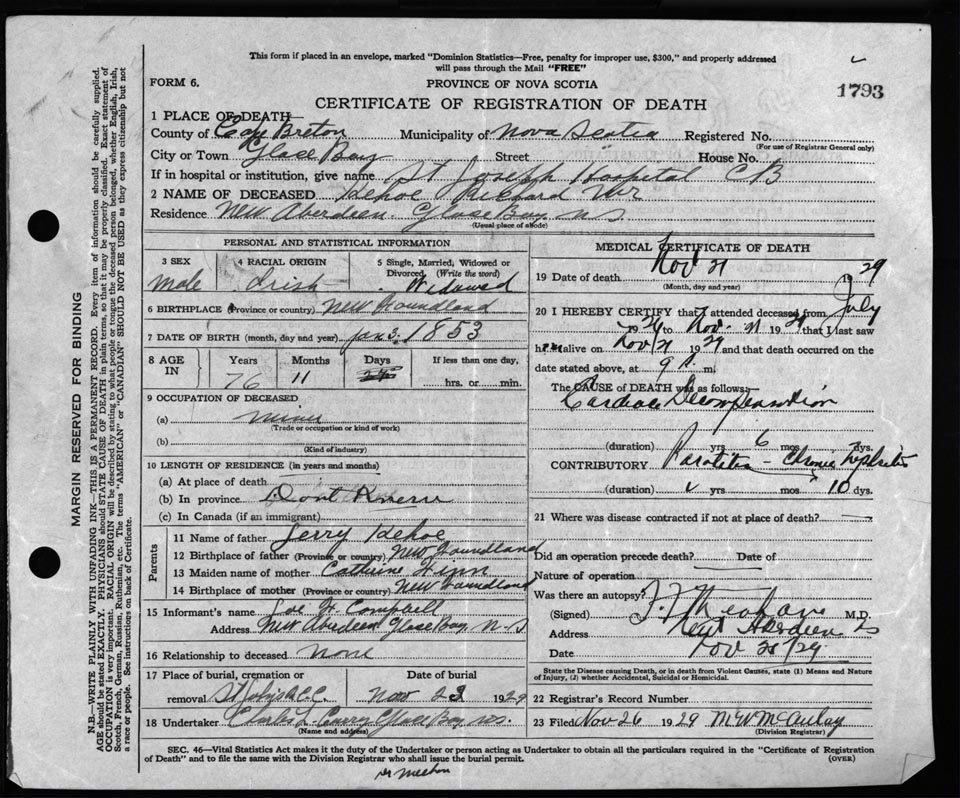 This form if placed in an envelope, marked "Dominion Statistics—Free, penalty for improper use, $300," and properly addressed
will pass through the Mail "FREE"
FORM 6.
PROVINCE OF NOVA SCOTIA
1793
CERTIFICATE OF REGISTRATION OF DEATH
1 PLACE OF DEATH
County of Cap Breton Municipality of Nova Scotia Registered No.
(For use of Registrar General only)
City or Town Glace Bay Street House No.
If in hospital or institution, give name St Joseph Hospital CB
2 NAME OF DECEASED Kehoe Richard Mr
Residence New Aberdeen Glace Bay NS
(Usual place of abode)
PERSONAL AND STATISTICAL INFORMATION
3 SEX
male
4 RACIAL ORIGIN
Irish
5 Single, Married, Widowed or
Divorced (Write the word)
Widowed
6 BIRTHPLACE (Province or country) New Foundland
7 DATE OF BIRTH (month, day and year) Jan 3. 1853
8 AGE IN
Years Months Days If less than one day,
76 11 hrs. or min.
9 OCCUPATION OF DECEASED
(a) miner
(Trade or occupation or kind of work)
(b)
(Kind of industry)
10 LENGTH OF RESIDENCE (in years and months)
(a) At place of death
(b) In province Dont Know
(c) In Canada (if an immigrant)
Parents
11 Name of father Jerry Kehoe
12 Birthplace of father (Province or country) New Foundland
13 Maiden name of mother Cathrine Finn
14 Birthplace of mother (Province or country) New Foundland
15 Informant's name H. Campbell
Address New Aberdeen Glace Bay N-S
16 Relationship to deceased None
17 Place of burial, cremation or Date of burial
removal Nov 23 1929
18 Undertaker Charles L Curry Glace Bay NS.
(Name and address)
MEDICAL CERTIFICATE OF DEATH
19 Date of death Nov 21 1929
(Month, day and year)
20 I HEREBY CERTIFY that I attended deceased from July
1929 to Nov. 21 1929 that I last saw
him alive on Nov 21 1929 and that death occurred on the
date stated above, at 9 A. m.
The CAUSE of DEATH was as follows:
Cardiac Decompensation
(duration) yrs 6 mos dys.
CONTRIBUTORY Parotitis - Chronic Nephritis
(duration) yrs mos 10 dys.
21 Where was disease contracted if not at place of death?
Did an operation precede death? Date of
Nature of operation
Was there an autopsy?
(Signed) M.D.
Address New Aberdeen
Date Nov 29
State the Disease causing Death, or in death from Violent Causes, state (1) Means and Nature
of Injury, (2) whether Accidental, Suicidal or Homicidal.
22 Registrar's Record Number
23 Filed Nov 26 1929 McAulay
(Division Registrar)
SEC. 46—Vital Statistics Act makes it the duty of the Undertaker or person acting as Undertaker to obtain all the particulars required in the "Certificate of Registration
of Death" and to file the same with the Division Registrar who shall issue the burial permit.
(OVER)
MARGIN RESERVED FOR BINDING
N.B.—WRITE PLAINLY WITH UNFADING INK—THIS IS A PERMANENT RECORD. Every item of information should be carefully supplied.
AGE should be stated EXACTLY. PHYSICIANS should STATE CAUSE OF DEATH in plain terms, so that it may be properly classified. Exact statement of
OCCUPATION is very important. RACIAL ORIGIN will be described by stating to what people or race the deceased person belonged, whether English, Irish,
Scotch, French, German, Russian, Ruthenian, etc. The terms "AMERICAN" or "CANADIAN" SHOULD NOT BE USED as they express citizenship but not
a race or people. See instructions on back of Certificate.